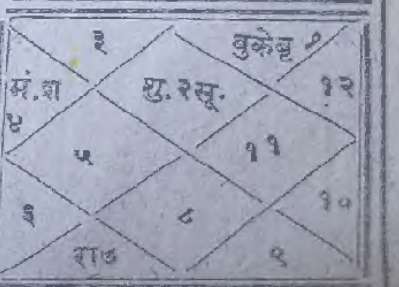 ३ बुकेबृ १
मं. श शु. २सू. १२
४
५ ११
६ ८ १०
रा७ ९